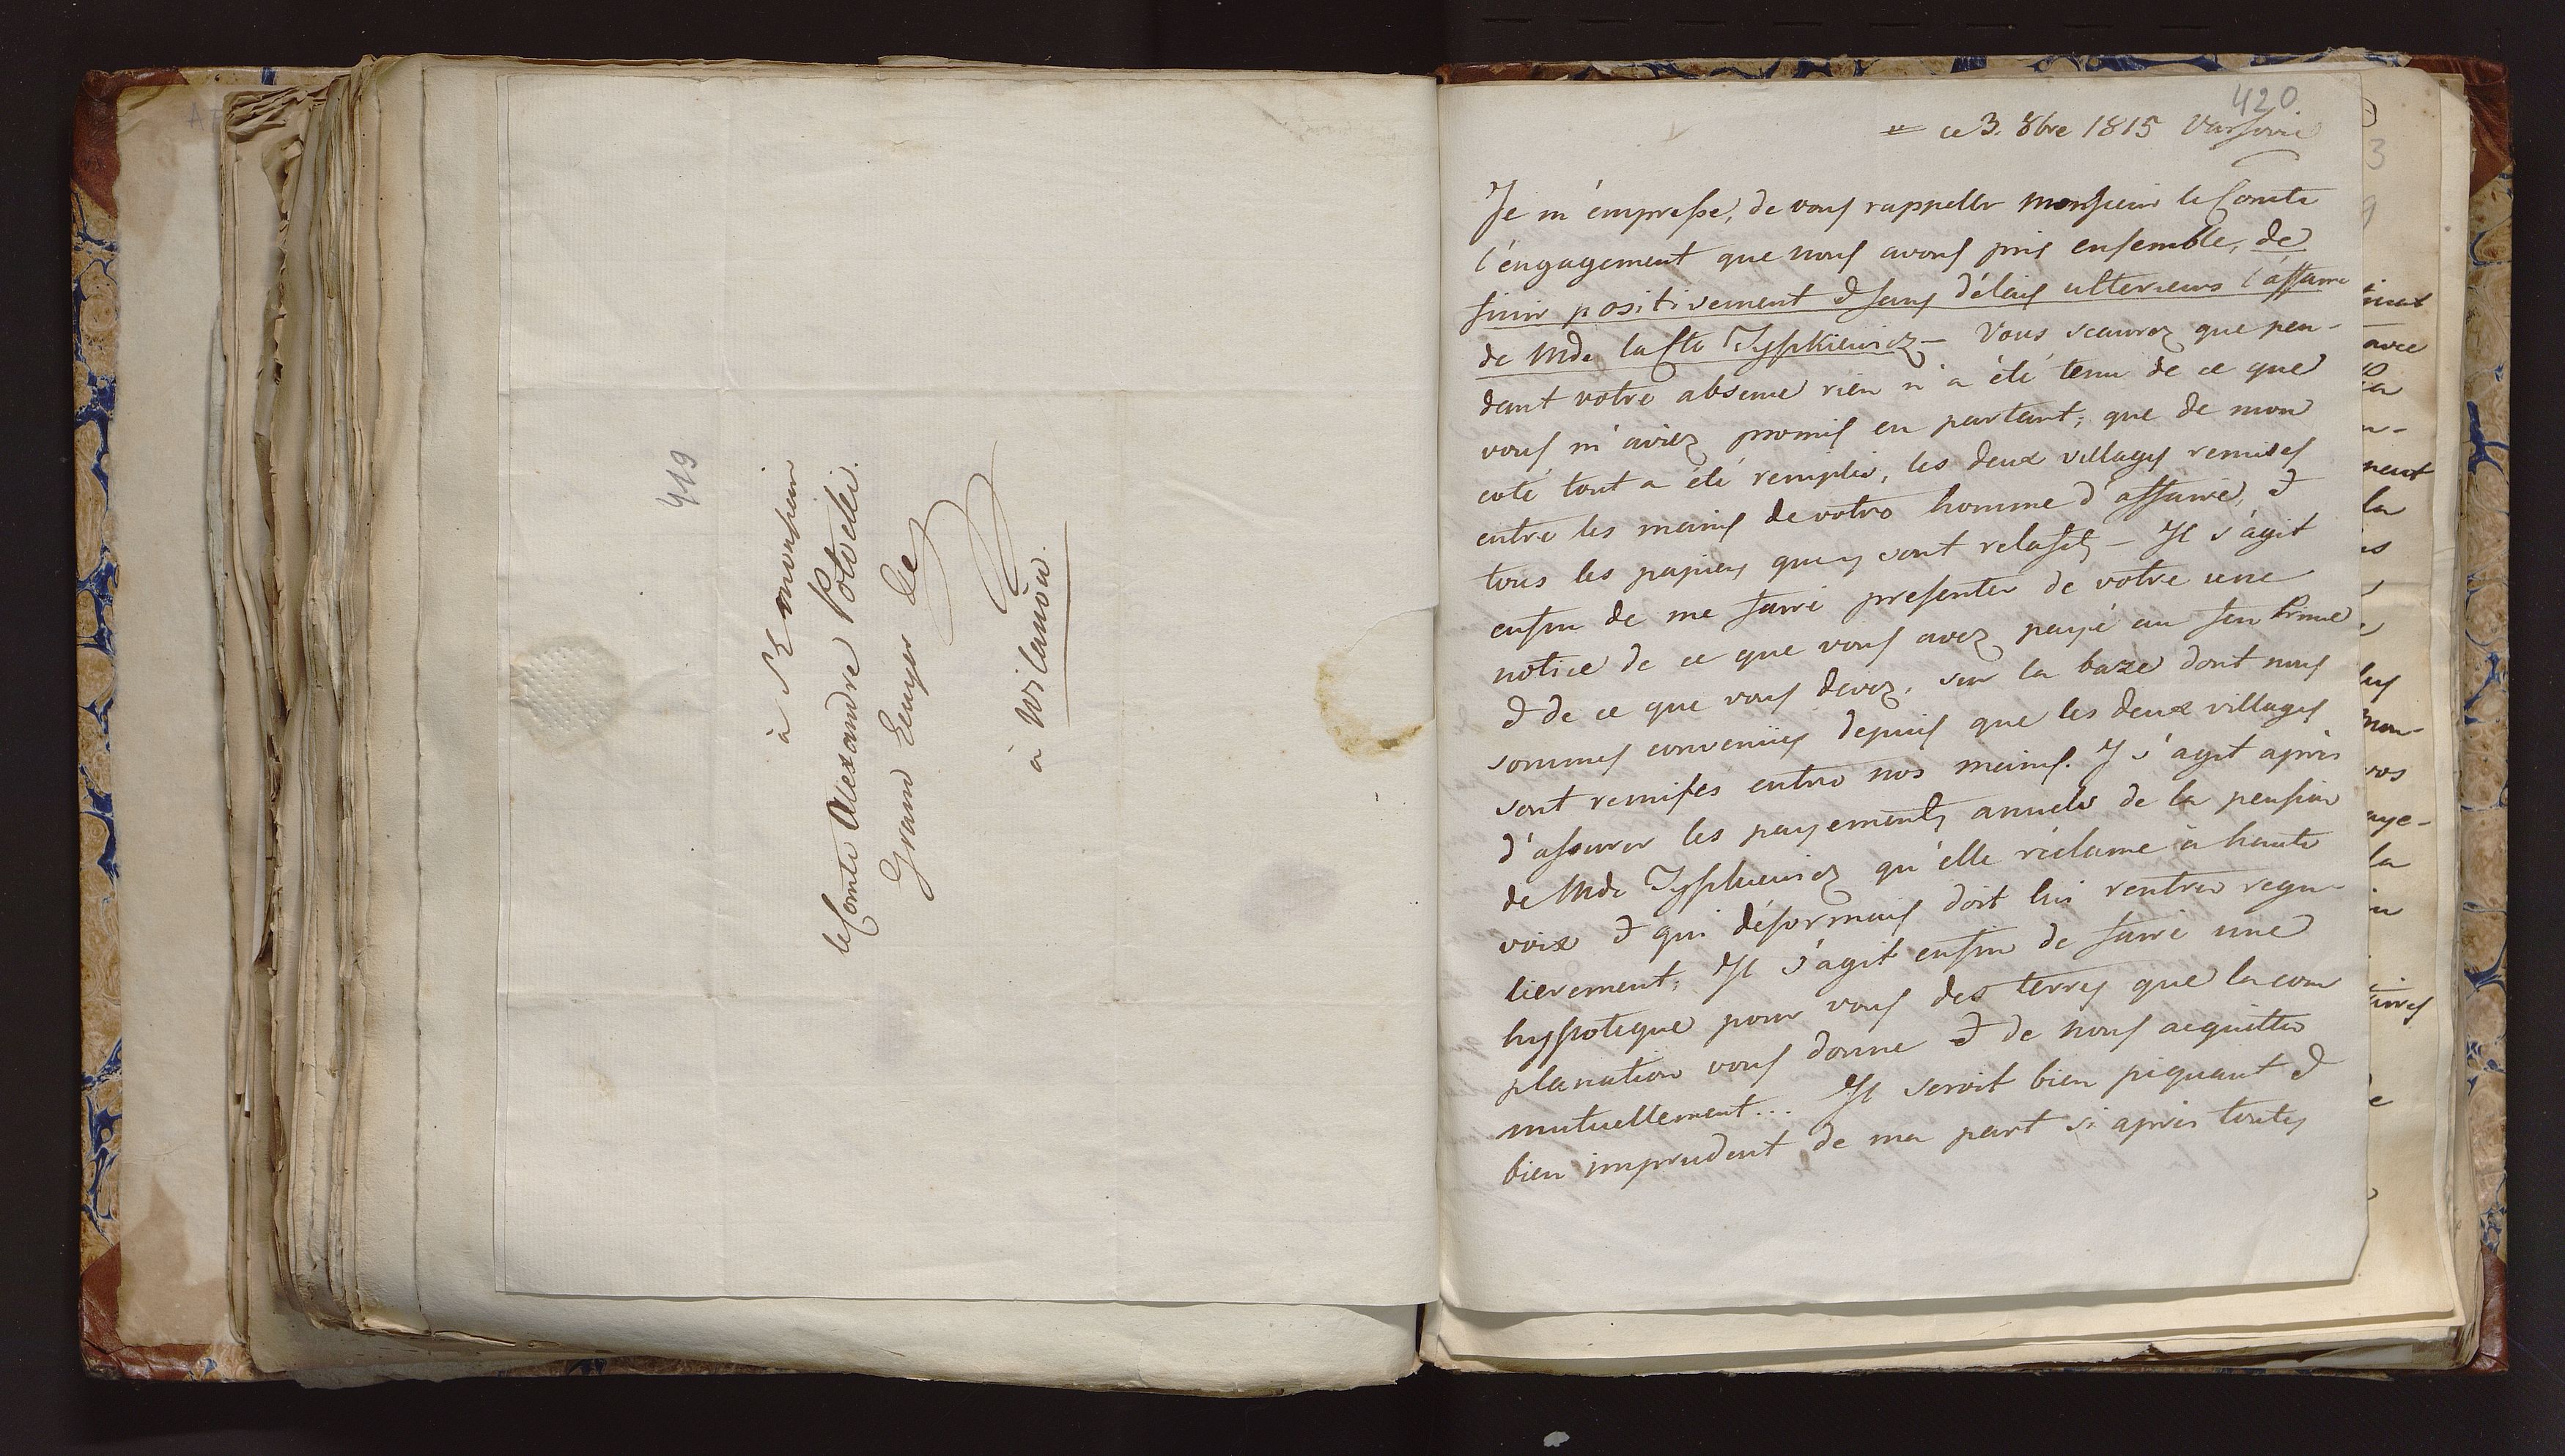 419
à S E monsieur
le Comte Alexandre Potocki.
Grand Ecuyer &c
à Wilanow.
420
ce 3. 8bre 1815 Varsovie
Je m'empresse, de vous rappeller monsieur le Comte
l'engagement que nous avons pris ensemble, de
finir positivement & sans délais ulterieurs l'affaire
de Mde la Cte Tyszkiewicz – Vous scaurez que pen-
dant votre absence rien n'a été tenu de ce que
vous m'aviez promis en partant; que de mon
coté tout a été remplie, les deux villages remises
entre les mains de votre homme d'affaire, &
tous les papiers qui y sont relatifs – Il s'agit
enfin de me faire presenter de votre une
notice de ce que vous avez payé au feu Prince
& de ce que vous devez, sur la baze dont nous
sommes convenus depuis que les deux villages
sont remises entre nos mains. Il s'agit après
d'assurer les payements annuels de la pension
de Mde Tyszkiewicz qu'elle réclame à haute
voix & qui désormais doit lui rentrer regu-
lierement; Il s'agit enfin de faire une
hypoteque pour vous des terres que la com
planation vous donne & de nous acquitter
mutuellement... Il seroit bien piquant &
bien imprudent de ma part si après toutes